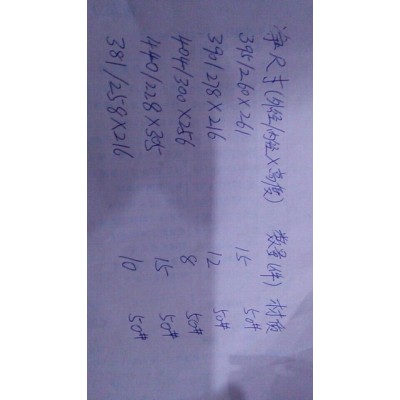 净尺寸(外径/内径×高度) 数量(件) 材质
395/260×261 15 50#
390/278×216 12 50#
404/300×256 8 50#
440/228×395 15 50#
381/258×216 10 50#